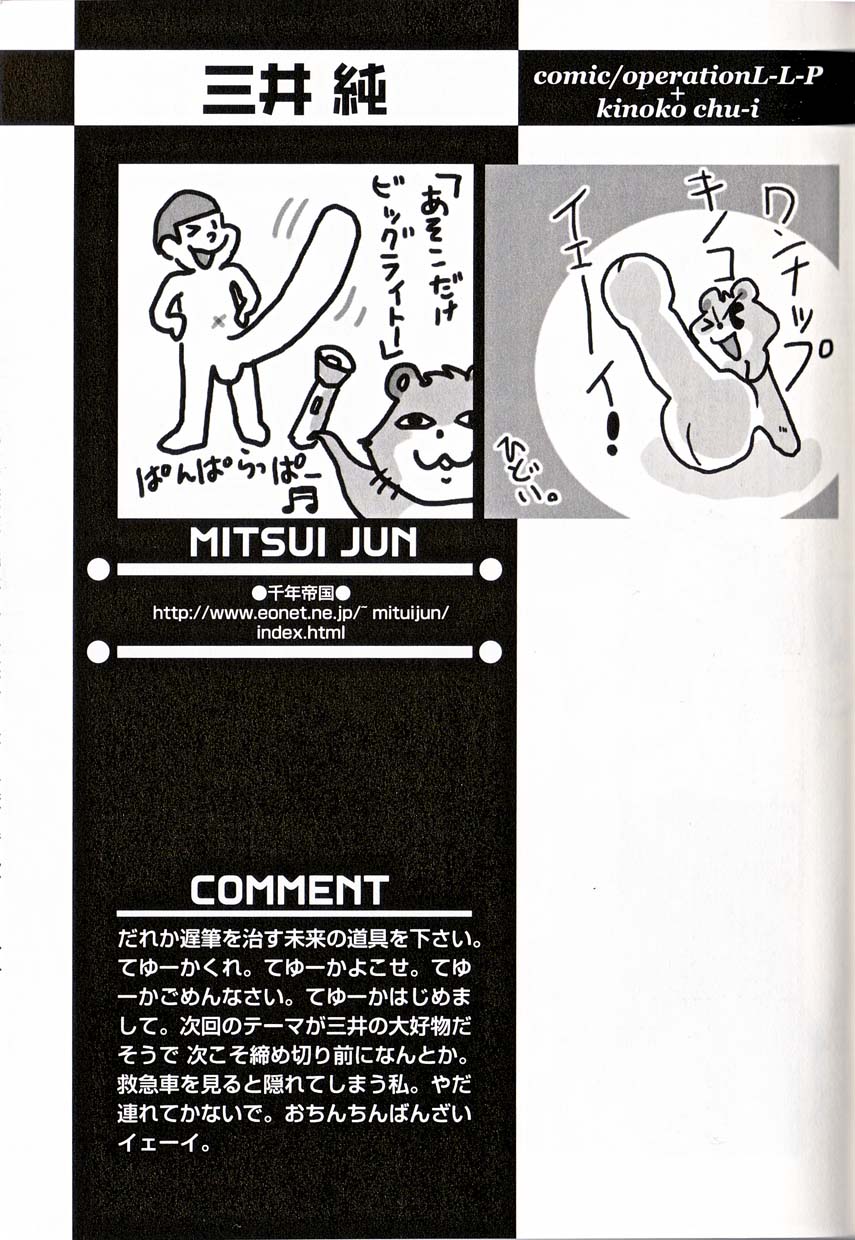 三井 純
comic/operationL-L-P
+
kinoko chu-i
「あそこだけ
ビッグライトー」
ぱんぱらっぱー
ワンナップ
キノコ
イェーイ!
ひどい。
MITSUI JUN
●千年帝国●
http://www.eonet.ne.jp/~mituijun/
index.html
COMMENT
だれか遅筆を治す未来の道具を下さい。
てゆーかくれ。てゆーかよこせ。てゆ
ーかごめんなさい。てゆーかはじめま
して。次回のテーマが三井の大好物だ
そうで 次こそ締め切り前になんとか。
救急車を見ると隠れてしまう私。やだ
連れてかないで。おちんちんばんざい
イェーイ。